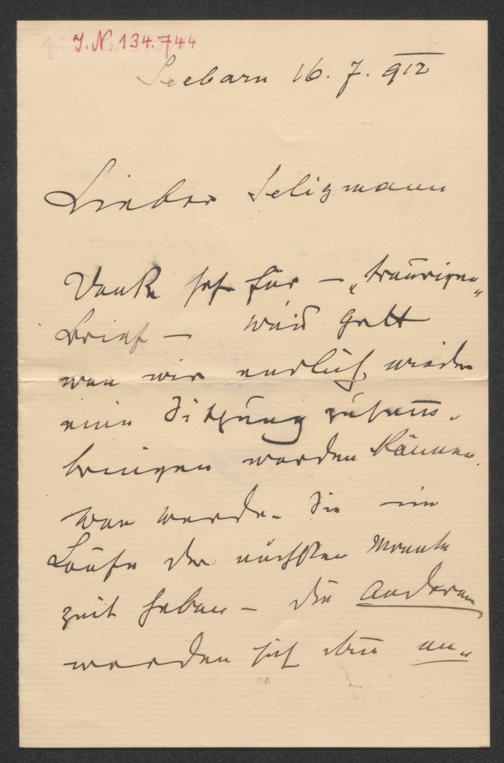 zu J.N. 134.744
Seebarn 16. 7. 912
Lieber Seligmann
Danke sehr für – „traurigen"
Brief – weiß Gott
wan wir endlich wieder
eine Sitzung zusam̄-
bringen werden können.
Wan werden Sie im
Laufe der nächsten Monate
Zeit haben – die anderen
werden sich dan̄ an-